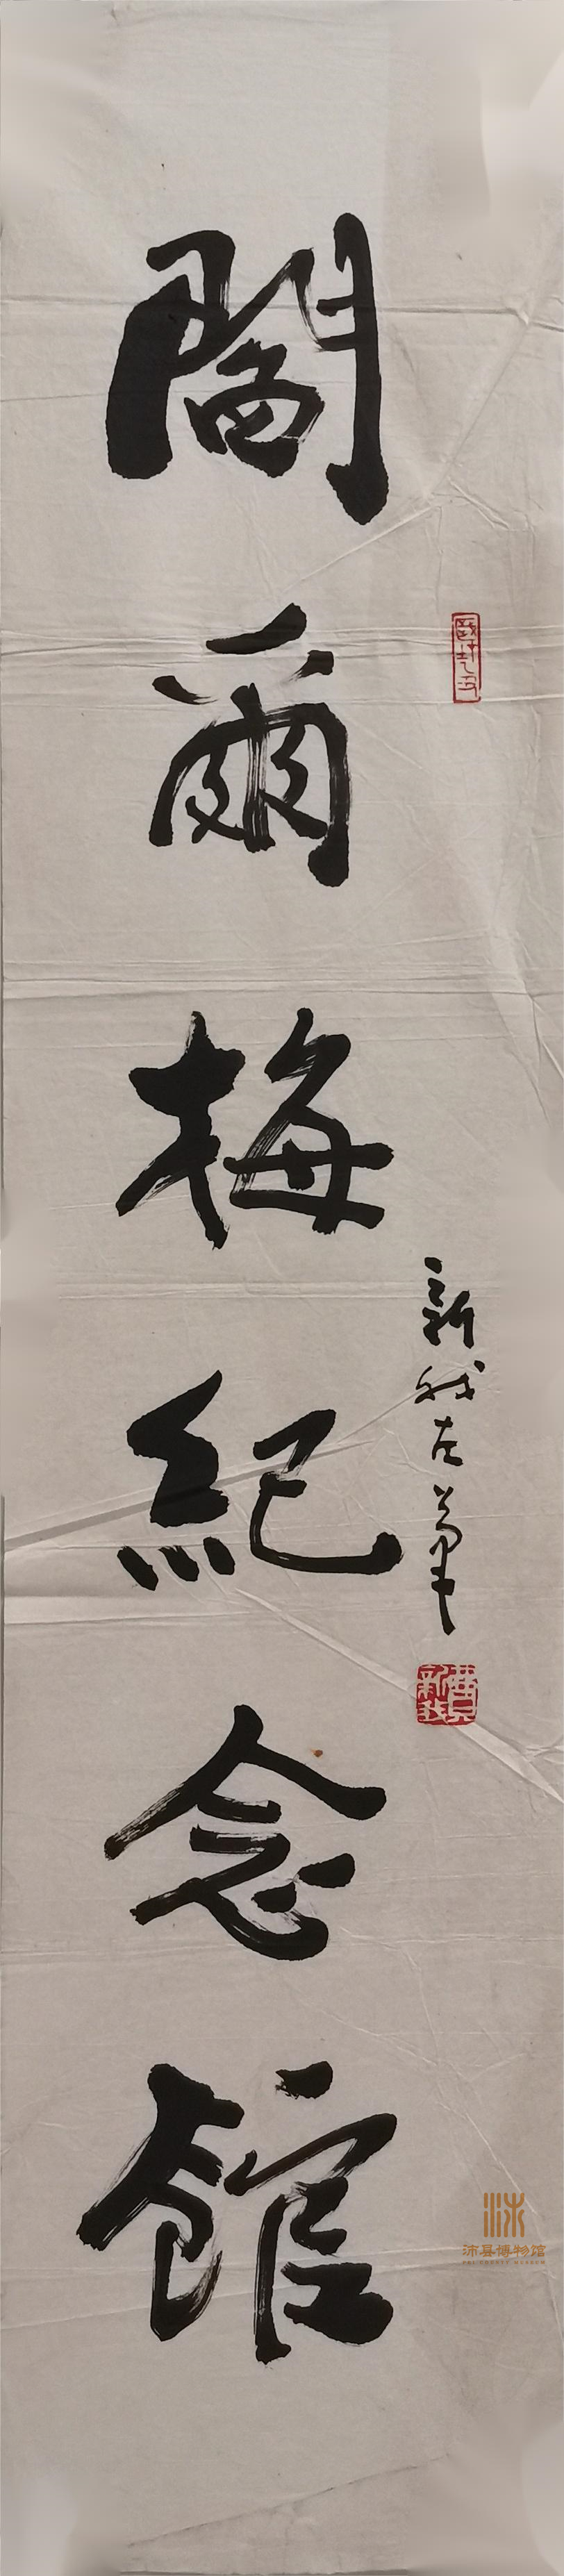 閻爾梅紀念館
新我左筆
費新我
沛县博物馆
PEI COUNTY MUSEUM